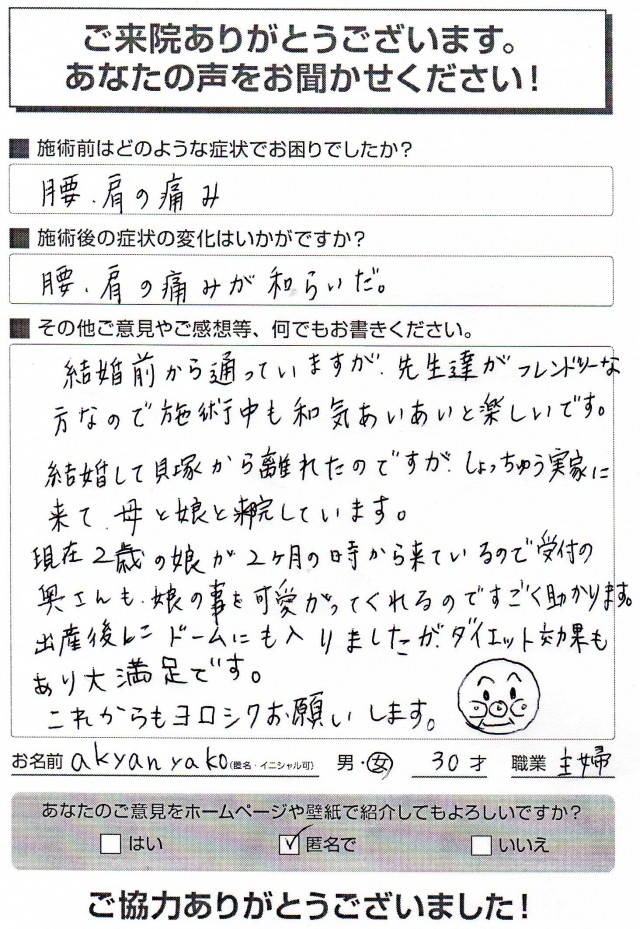 ご来院ありがとうございます。
あなたの声をお聞かせください！
■ 施術前はどのような症状でお困りでしたか？
腰、肩の痛み
■ 施術後の症状の変化はいかがですか？
腰、肩の痛みが和らいだ。
■ その他ご意見やご感想等、何でもお書きください。
結婚前から通っていますが、先生達がフレンドリーな
方なので施術中も和気あいあいと楽しいです。
結婚して貝塚から離れたのですが、しょっちゅう実家に
来て、母と娘と来院しています。
現在2歳の娘が2ヶ月の時から来ているので受付の
奥さんも、娘の事を可愛がってくれるのですごく助かります。
出産後に ドームにも入りましたが、ダイエット効果も
あり大満足です。
これからもヨロシクお願いします。
お名前 akyanyako (匿名・イニシャル可) 男・女 30才 職業 主婦
あなたのご意見をホームページや壁紙で紹介してもよろしいですか？
□はい ☑匿名で □いいえ
ご協力ありがとうございました！